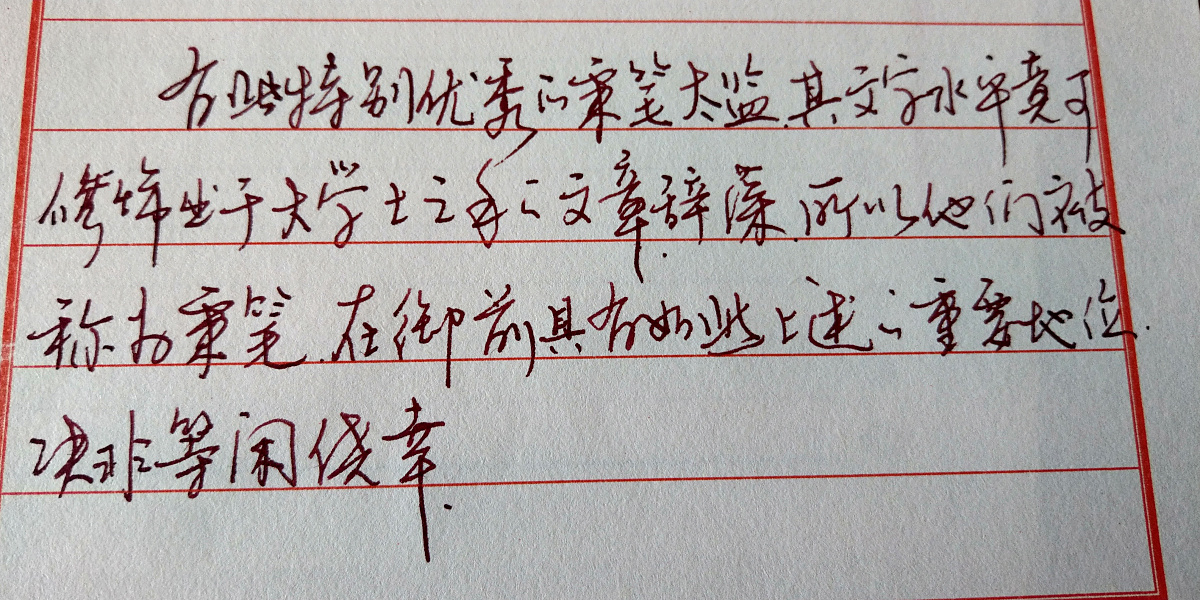 有些特别优秀的秉笔太监,其文字水平竟可
修饰出于大学士之手的文章辞藻,所以他们被
称为秉笔,在御前具有如此上述的重要地位,
决非等闲侥幸.